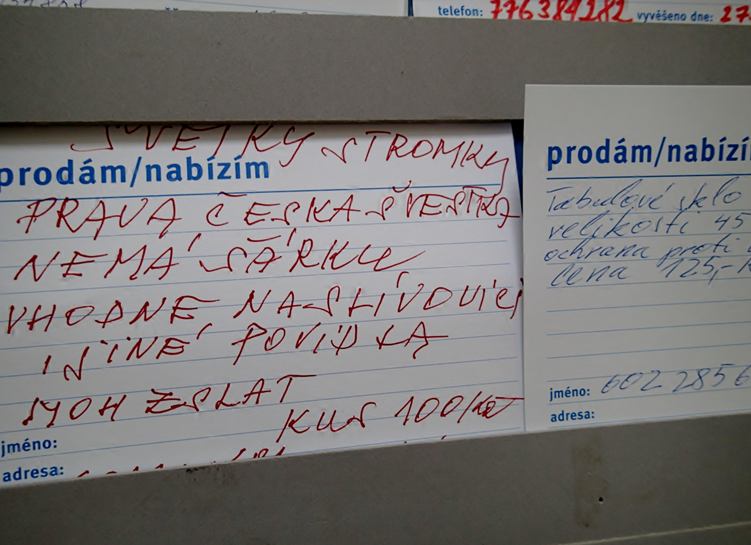 telefon: 776384282 vyvěšeno dne: 27
STROMKY
prodám/nabízím
PRAVA ČESKA ŠVESTKA
NEMÁ ŠÁRKU
VHODNE NA SLIVOVICI
I JINÉ POVIDLA
MOH ZSLAT
KUS 100/Kč
jméno:
adresa:
prodám/nabízí
Tabulové sklo
velikosti 45
ochrana proti
Cena 125,-
jméno: 602 2856
adresa: